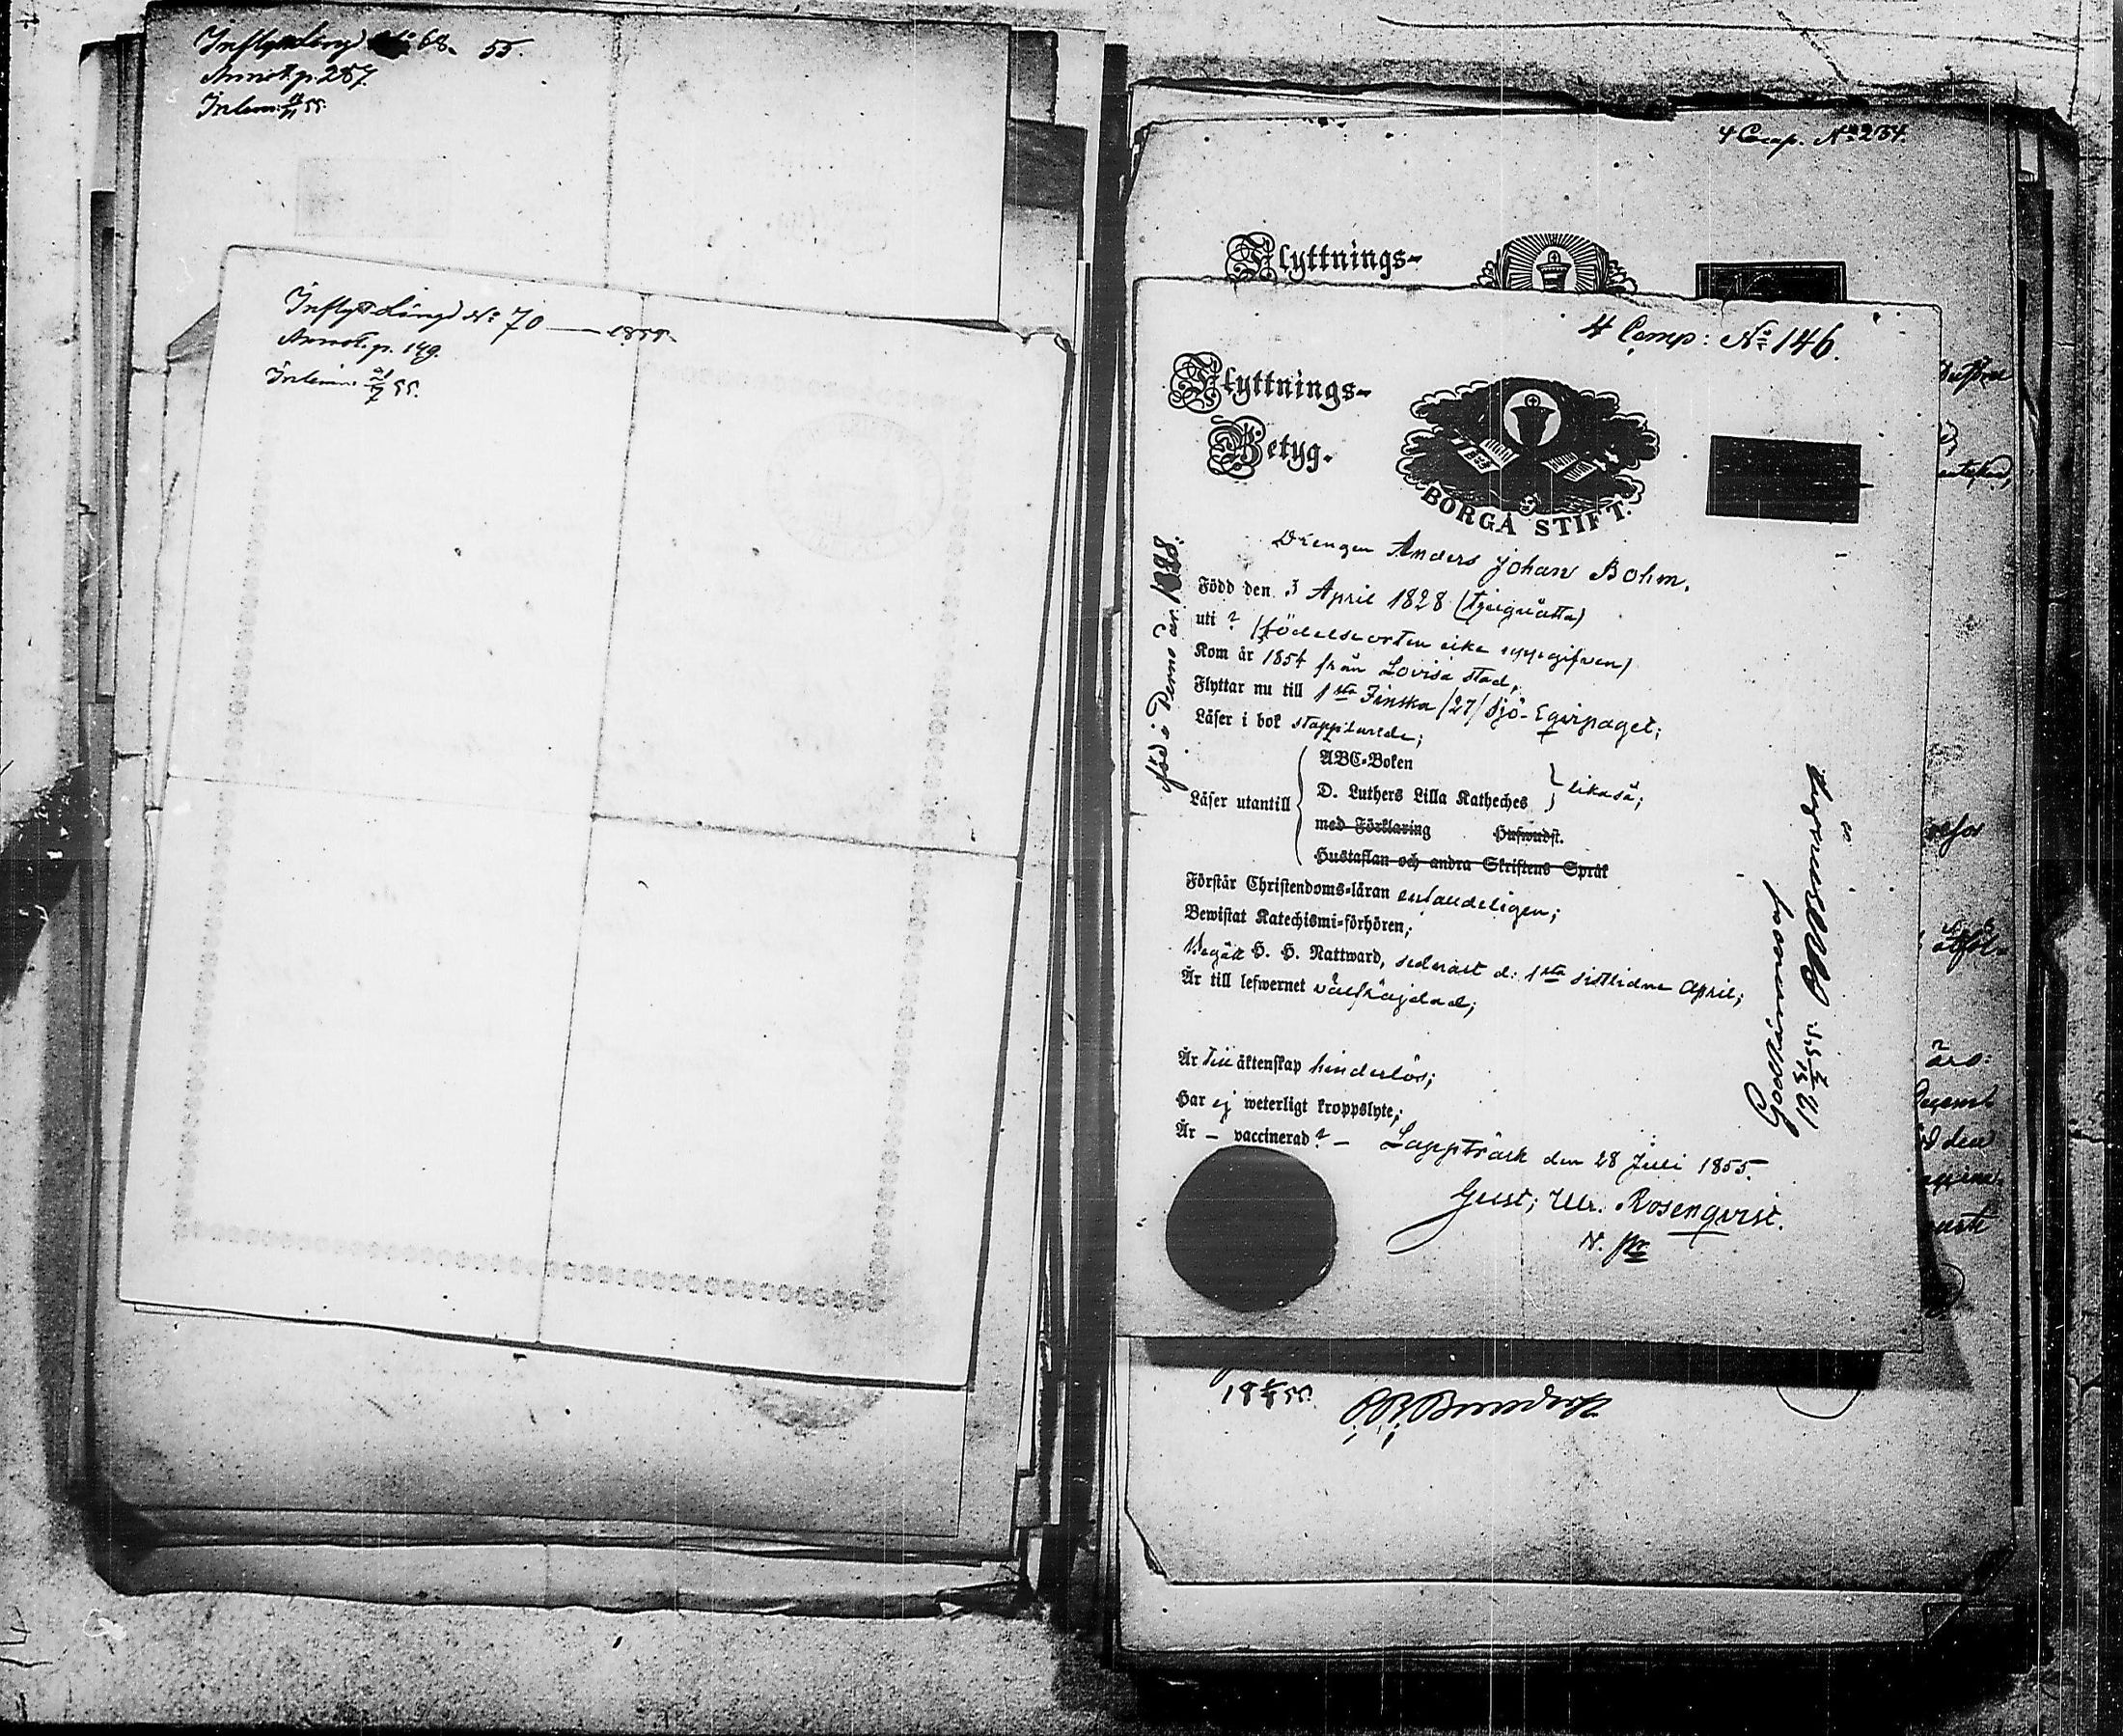 Inflyttn Längd No 68. 55.
Annot. p. 257.
Inlem: 55
Inflyttn Längd No 70 — 1855.
Annot. p. 149.
Inlem: 31/7 55.
4 Comp. No 234.
Flyttnings-
4 Comp: No 146.
Flyttnings-
Betyg.
BORGÅ STIFT.
Drengen Anders Johan Bohm.
Född den 3 April 1828 (tjuguåtta)
uti ? (födelseorten icke uppgifven)
Kom år 1854 från Lovisa stad,
Flyttar nu till 1sta Finska /27/ Sjö-Eqvipaget;
Läser i bok stapplande;
Läser utantill
ABC-Boken
D. Luthers Lilla Katheches } likaså;
med Förklaring Hufwudst.
Hustaflan och andra Skriftens Språk
Förstår Christendoms-läran enfaldeligen;
Bewistat Katechismi-förhören;
Begått H. H. Nattward, sednast d: 1sta sistlidne April;
Är till lefwernet välfräjdad;
Är till äktenskap hinderlös;
Har ej weterligt kroppslyte;
Är — vaccinerad? — Lappträsk den 28 Juli 1855.
Gust; Ulr. Rosenqvist.
född i Perno år 1828.
Godkännes
18 55.